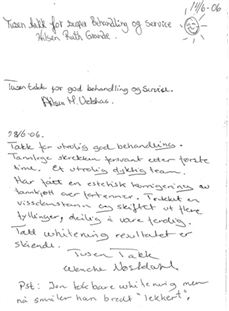 14/6-06
Tusen takk for super Behandling og Service
Hilsen Ruth Grande.
Tusen takk for god behandling og Service.
Hilsen H.
28/6-06.
Takk for utrolig god behandling.
Tannlege skrekken forvant etter første
time. Et utrolig dyktig team.
Har fått en estetisk korrigering av
tannkjøtt over fortenner. Trekt en
visdomstann og skiftet ut flere
fyllinger, deilig å være ferdig.
Tatt whitening resultatet er
slående.
Tusen Takk
Wenche
Pst: Ikke bare whitening men
nå smiler han bredt "lekkert".